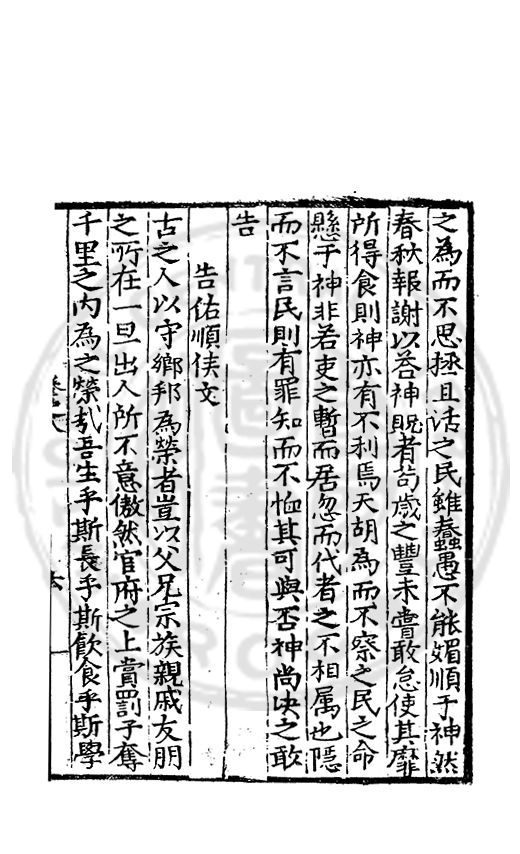 之為而不思拯且活之民雖蠢愚不能媚順于神然
春秋報謝以荅神貺者苟歲之豐未嘗敢怠使其靡
所得食則神亦有不利焉天胡為而不察之民之命
懸于神非若吏之暫而居忽而代者之不相属也隱
而不言民則有罪知而不恤其可與否神尚决之敢
告
告佑順侯文
古之人以守鄉邦為榮者豈以父兄宗族親戚友朋
之所在一旦出人所不意傲然官府之上賞罰予奪
千里之内為之榮哉吾生乎斯長乎斯飲食乎斯學
卷六
六